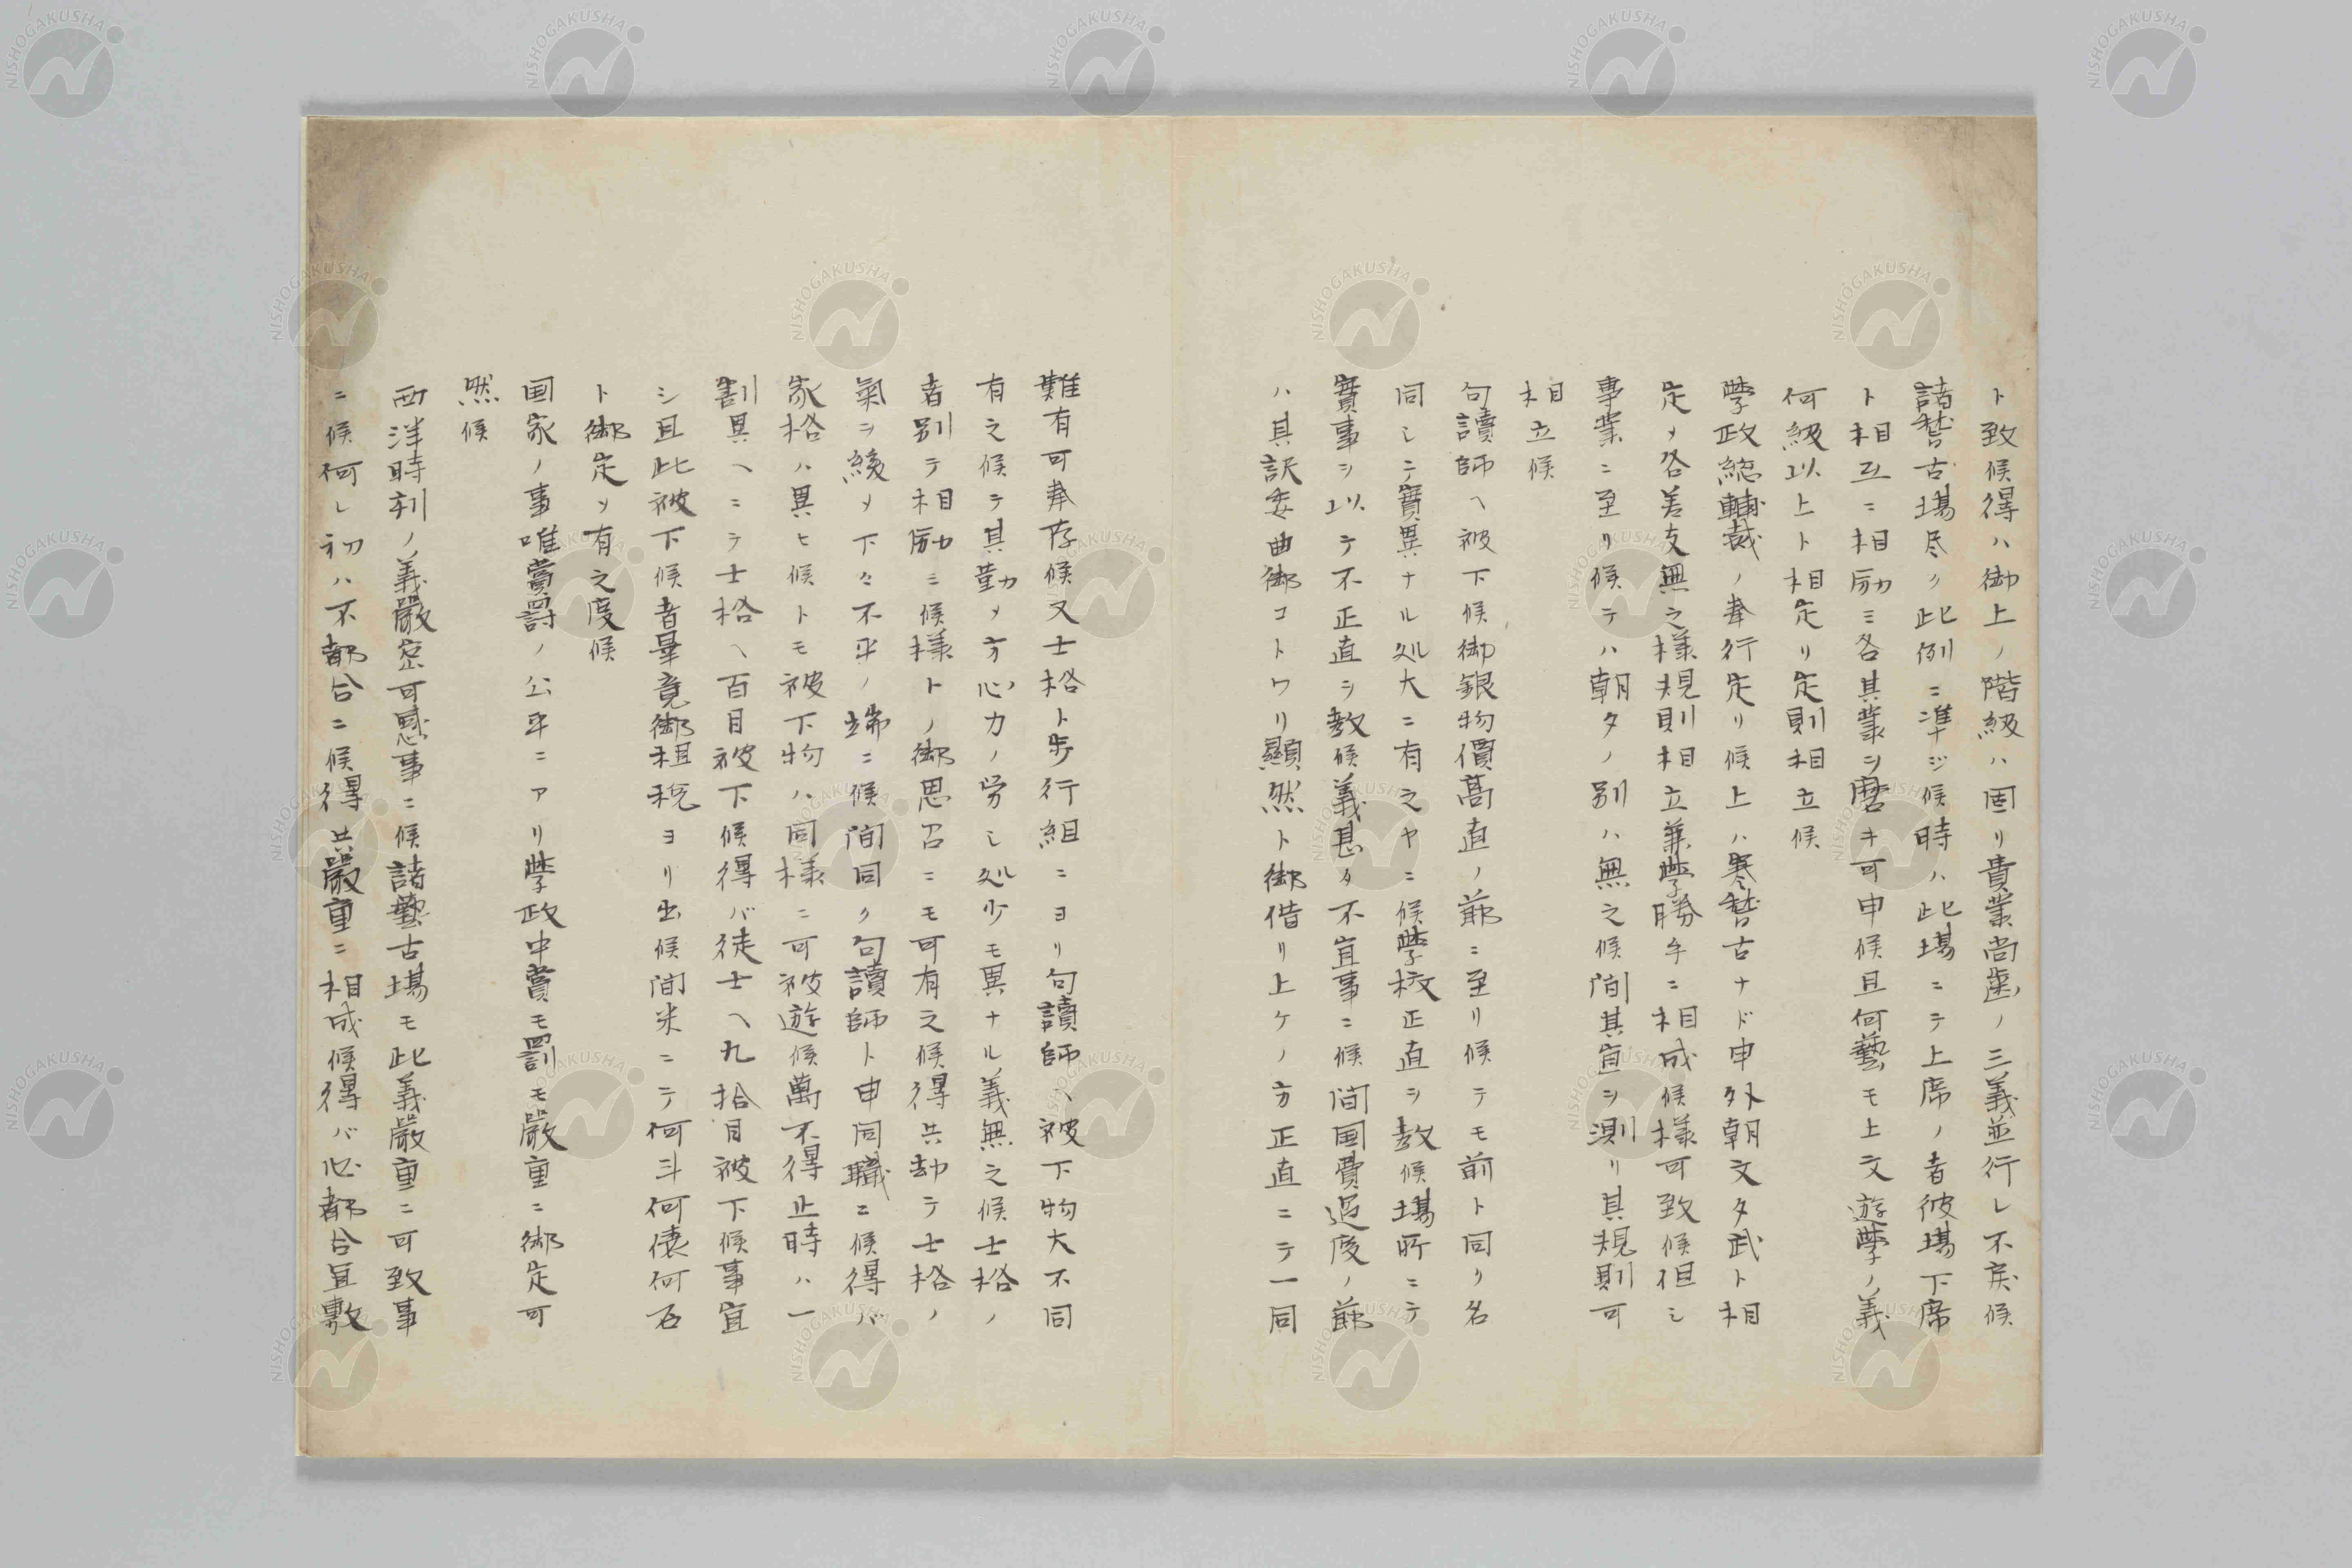 ト致候得ハ御上ノ階級ハ固リ貴業尚歯ノ三義並行レ不戻候
諸稽古場尽ク此例ニ準ジ候時ハ此場ニテ上席ノ者彼場下席
ト相互ニ相励ミ各其業ヲ磨キ可申候且何藝モ上文遊學ノ義
何級以上ト相定リ定則相立候
學政総輔裁ノ奉行定リ候上ハ寒稽古ナド申外朝文夕武ト相
定メ各差支無之様規則相立兼學勝手ニ相成候様可致候但シ
事業ニ至リ候テハ朝夕ノ別ハ無之候間其宜ヲ測リ其規則可
相立候
句讀師ヘ被下候御銀物價髙直ノ節ニ至リ候テモ前ト同リ名
同シニテ實異ナル処大ニ有之ヤニ候學校正直ヲ教候場所ニテ
實事ヲ以テ不正直ヲ教候義甚タ不宜事ニ候間国費過度ノ節
ハ其訳委曲御コトワリ顯然ト御借リ上ケノ方正直ニテ一同
難有可奉存候又士格ト歩行組ニヨリ句讀師ヘ被下物大不同
有之候テ其勤メ方心力ノ労シ処少モ異ナル義無之候士格ノ
者別テ相励ミ候様トノ御思召ニモ可有之候得共却テ士格ノ
氣ヲ緩メ下々不平ノ端ニ候間同ク句讀師ト申同職ニ候得バ
家格ハ異ヒ候トモ被下物ハ同様ニ可被遊候萬不得止時ハ一
割異ヘニテ士格ヘ百目被下候得バ徒士ヘ九拾目被下候事宜
シ且此被下候者畢竟御租税ヨリ出候間米ニテ何斗何俵何石
ト御定メ有之度候
国家ノ事唯賞罸ノ公平ニアリ學政中賞モ罰モ嚴重ニ御定可
然候
西洋時刻ノ義嚴密可感事ニ候諸藝古場モ此義嚴重ニ可致事
ニ候何レ初ハ不都合ニ候得共嚴重ニ相成候得バ必都合宜敷